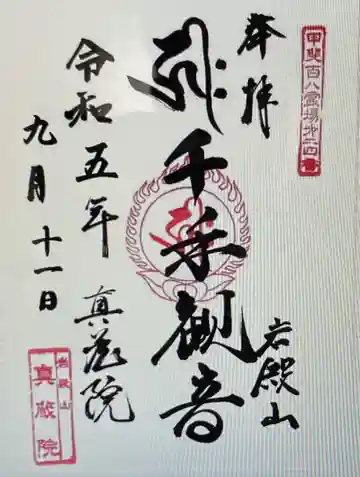 甲斐百八霊場第二四番
奉拝
千手観音
岩殿山
令和五年
真蔵院
九月十一日
岩殿山
真蔵院